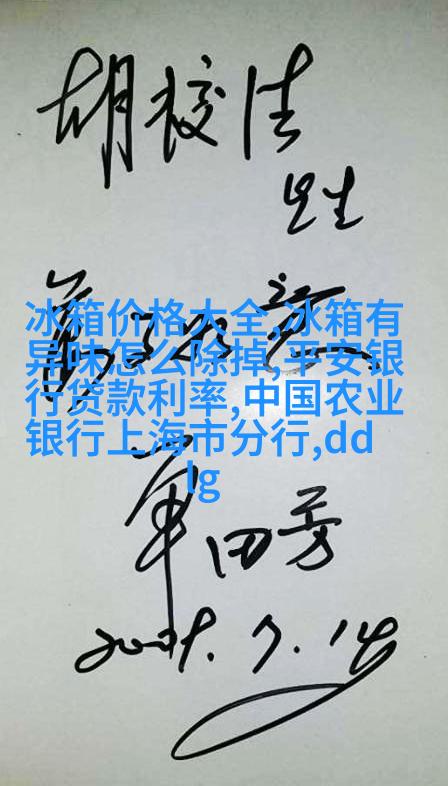 胡校
先生
冰箱价格大全,冰箱有
异味怎么除掉,平安银
行贷款利率,中国农业
银行上海市分行,dd
lg
单田芳